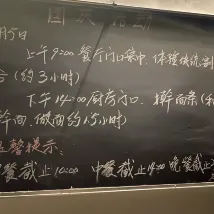 国庆活动
月5日
上午9:00餐厅门口集中,体验快
合(约3小时)
下午14:00厨房门口,擀面条(和
擀面,做面约1.5小时)
温馨提示:
餐截止10:00 中餐截止14:00 晚餐截止